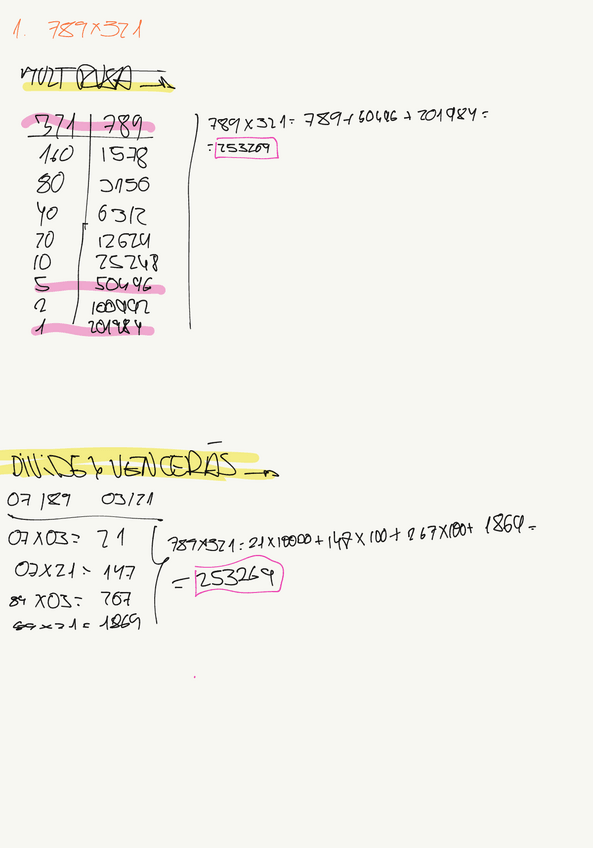 1. 789×321
MULT RUSA →
321 | 789
160 | 1578
80 | 3156
40 | 6312
20 | 12624
10 | 25248
5 | 50496
2 | 100992
1 | 201984
789×321= 789+50496+201984=
=253269
DIVIDE y VENCERÁS →
07/89 03/21
07×03= 21
07×21= 147
89×03= 267
89×21= 1869
789×321=21×10000+147×100+267×100+1869=
=253269